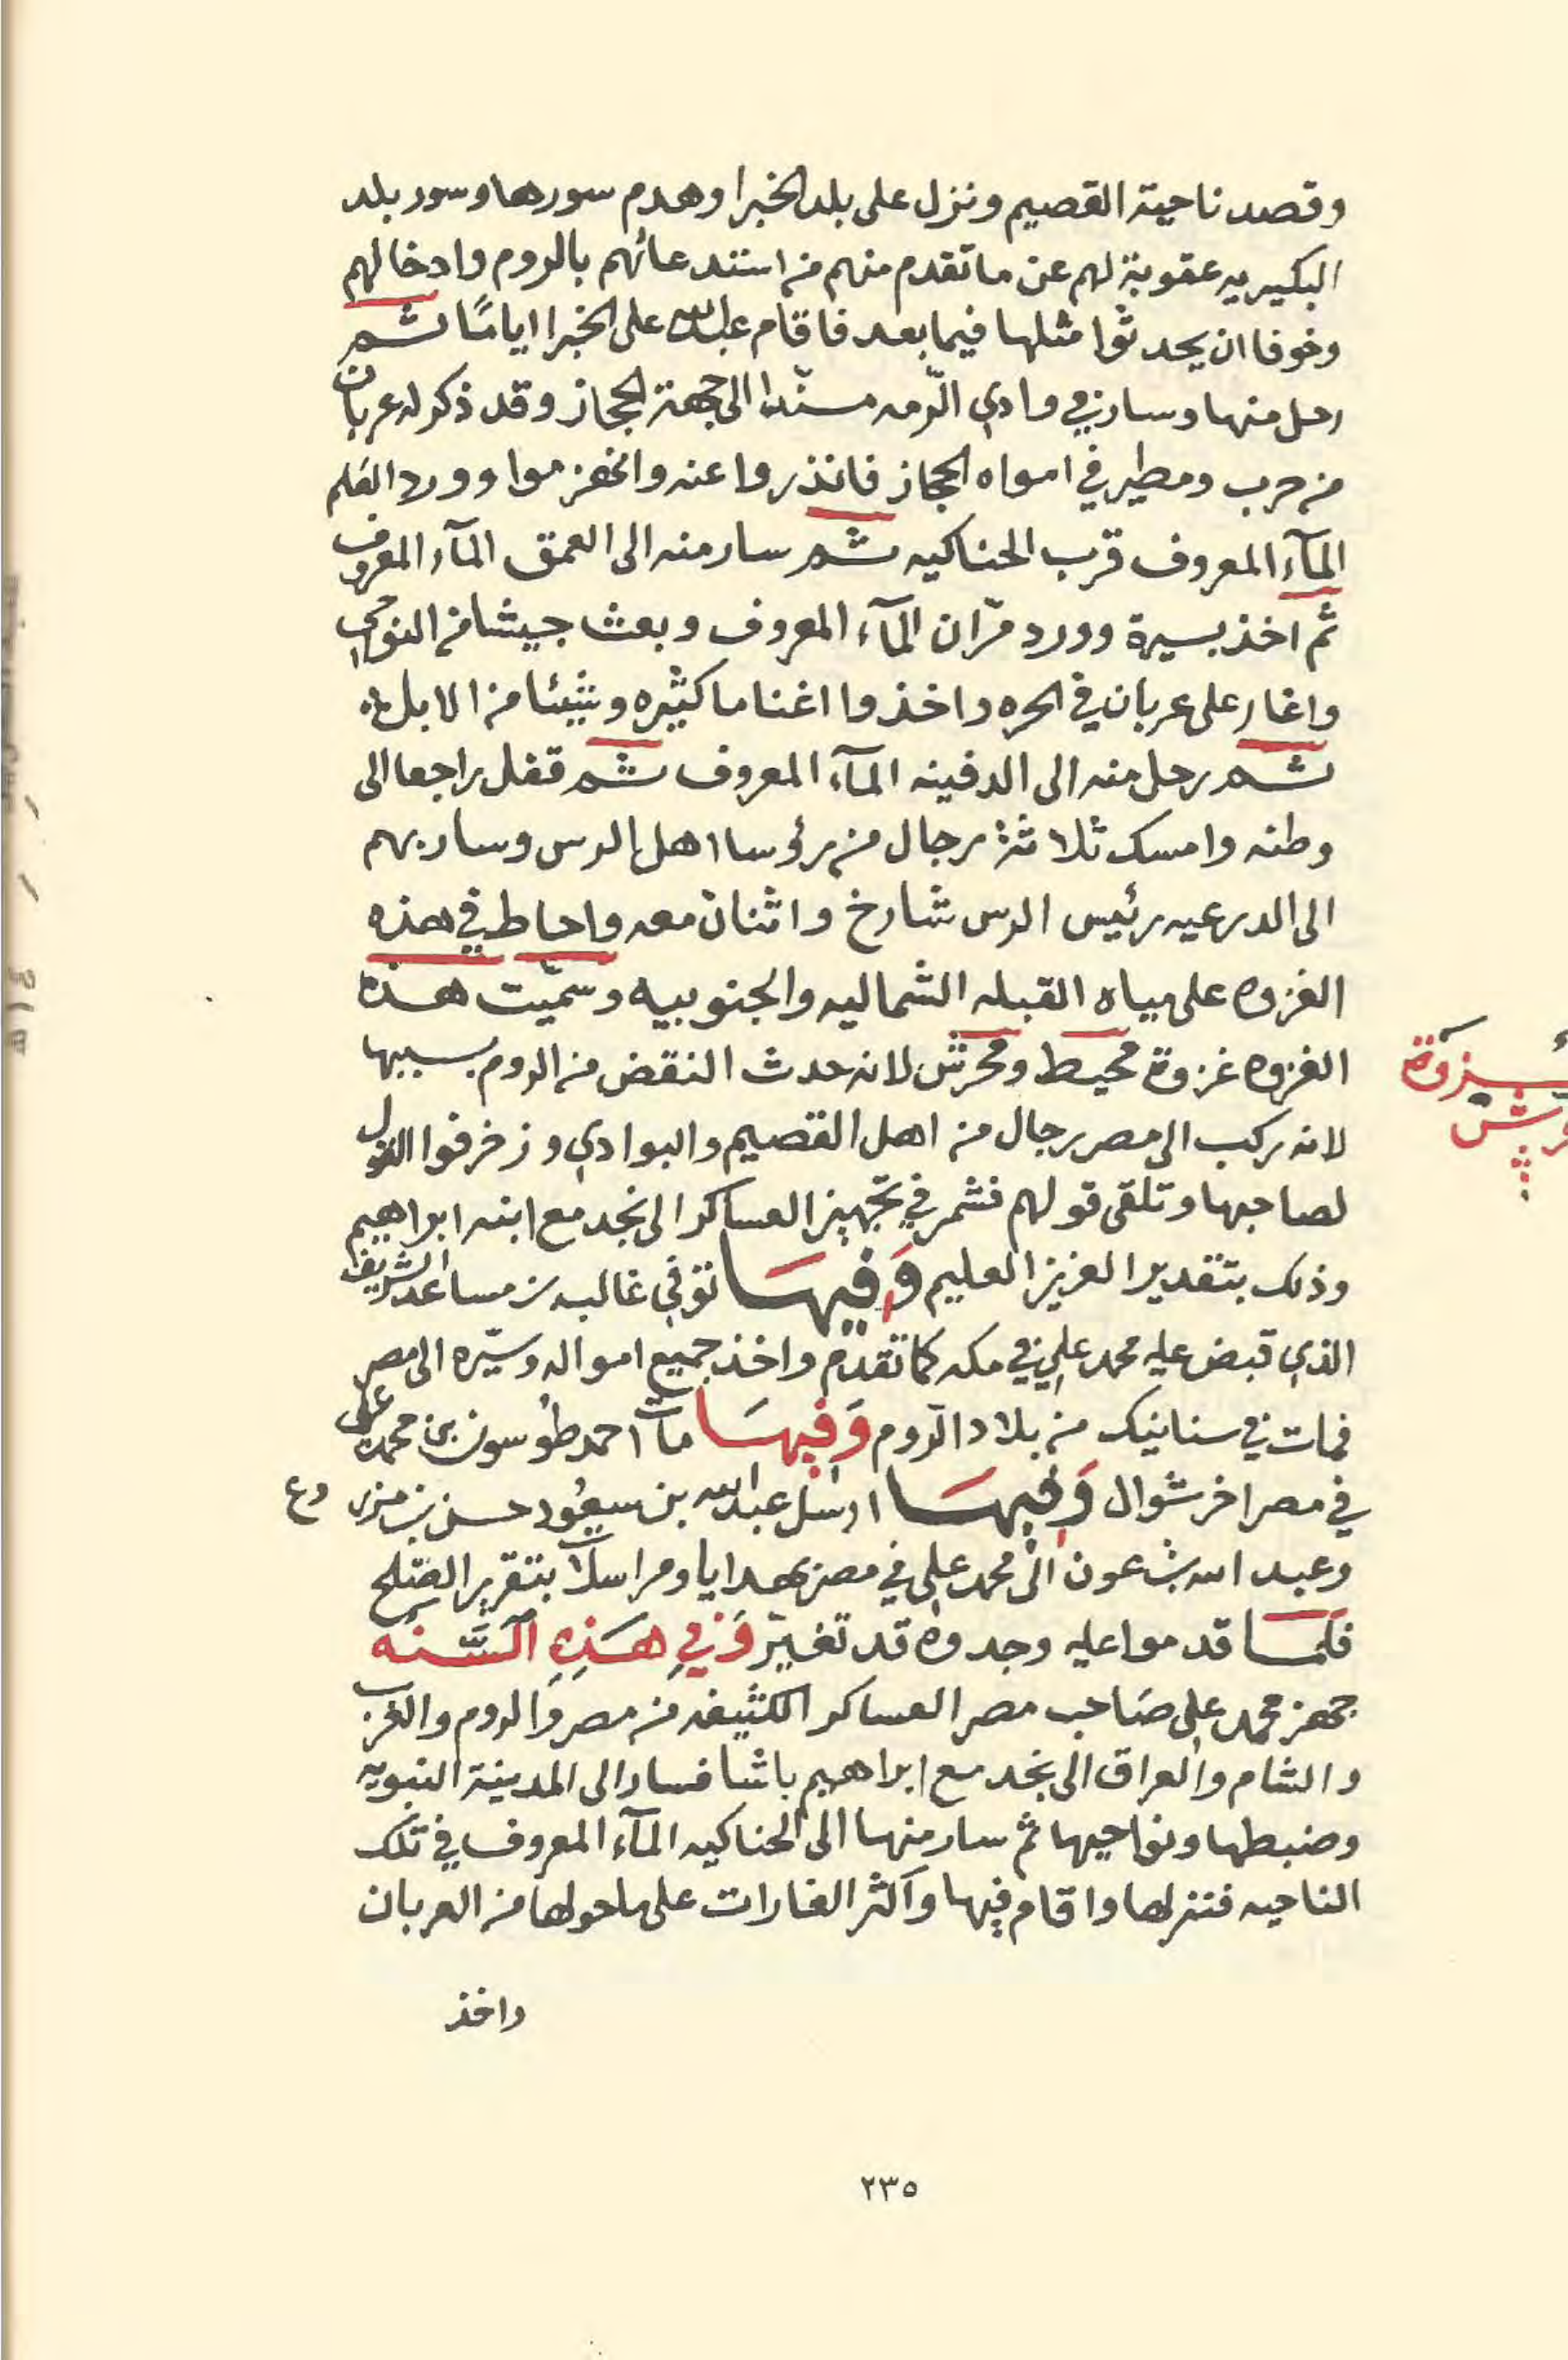 وقصد ناحية القصيم ونزل على بلد الخبرا وهدم سورها وسور بلد
البكيريه عقوبة لهم عن ما تقدم منهم من استدعائهم بالروم وادخالهم
وخوفا ان يحدثوا مثلها فيما بعد فاقام عبدالله على الخبرا اياماً ثم
رحل منها وسار في وادي الرّمه مسنّدا الى جهة الحجاز وقد ذكر له عربان
من حرب ومطير في امواه الحجاز فانذروا عنه وانهزموا وورد العلم
المآء المعروف قرب الحناكيه ثم سار منه الى العمق المآء المعروف
ثم اخذ يسيرة وورد مرّان المآء المعروف وبعث جيشا من النواحي
واغار على عربان في الحره واخذوا اغناما كثيره وشيئا من الابل
ثم رحل منه الى الدفينه المآء المعروف ثم قفل راجعا الى
وطنه وامسك ثلاثة رجال من رؤسا اهل الرس وسار بهم
الى الدرعيه رئيس الرس شارخ واثنان معه واحاط في هذه
الغزوه على مياه القبله الشماليه والجنوبيه وسمّيت هذه
الغزوه غزوة محيط ومحرش لانه حدث النقض من الروم بسببها
لانه ركب الى مصر رجال من اهل القصيم والبوادي وزخرفوا القول
لصاحبها وتلقى قولهم فشمر في تجهيز العساكر الى نجد مع ابنه ابراهيم
وذلك بتقدير العزيز العليم وَفيهَا توفي غالب بن مساعد الشريف
الذي قبض عليه محمد علي في مكه كما تقدم واخذ جميع امواله وسيّره الى مصر
فمات في سنانيك من بلاد الرّوم وَفيهَا مات احمد طوسون بن محمد علي
في مصر اخر شوال وَفيهَا ارسل عبدالله بن سعود حسن بن مزروع
وعبد الله بن عون الى محمد علي في مصر بهدايا ومراسلات بتقرير الصّلح
فلمّا قدموا عليه وجدوه قد تغيّر وَفي هَذِهِ السَّنه
جهز محمد علي صاحب مصر العساكر الكثيفه من مصر والروم والغرب
والشام والعراق الى نجد مع ابراهيم باشا فسار الى المدينة النبويه
وضبطها ونواحيها ثم سار منها الى الحناكيه المآء المعروف في تلك
الناحيه فنزلها واقام فيها واكثر الغارات على ما حولها من العربان
واخذ
٢٣٥